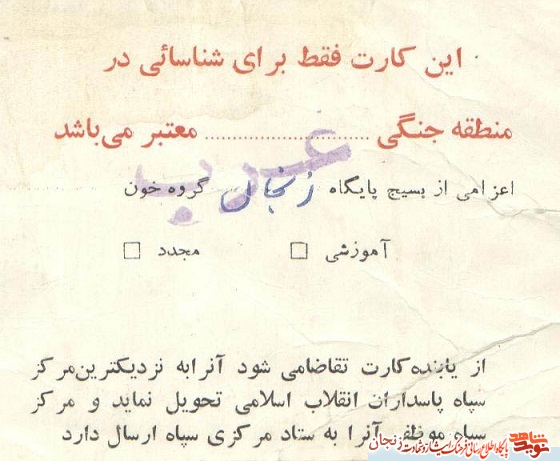 این کارت فقط برای شناسائی در
منطقه جنگی .............................. معتبر می‌باشد
غرب
اعزامی از بسیج پایگاه زنجان گروه خون
آموزشی □ مجدد □
از یابنده کارت تقاضامی شود آنرابه نزدیکترین‌مرکز
سپاه پاسداران انقلاب اسلامی تحویل نماید و مرکز
سپاه موظف آنرا به ستاد مرکزی سپاه ارسال دارد
نوید شاهد
پایگاه اطلاع رسانی فرهنگ ایثار و شهادت زنجان